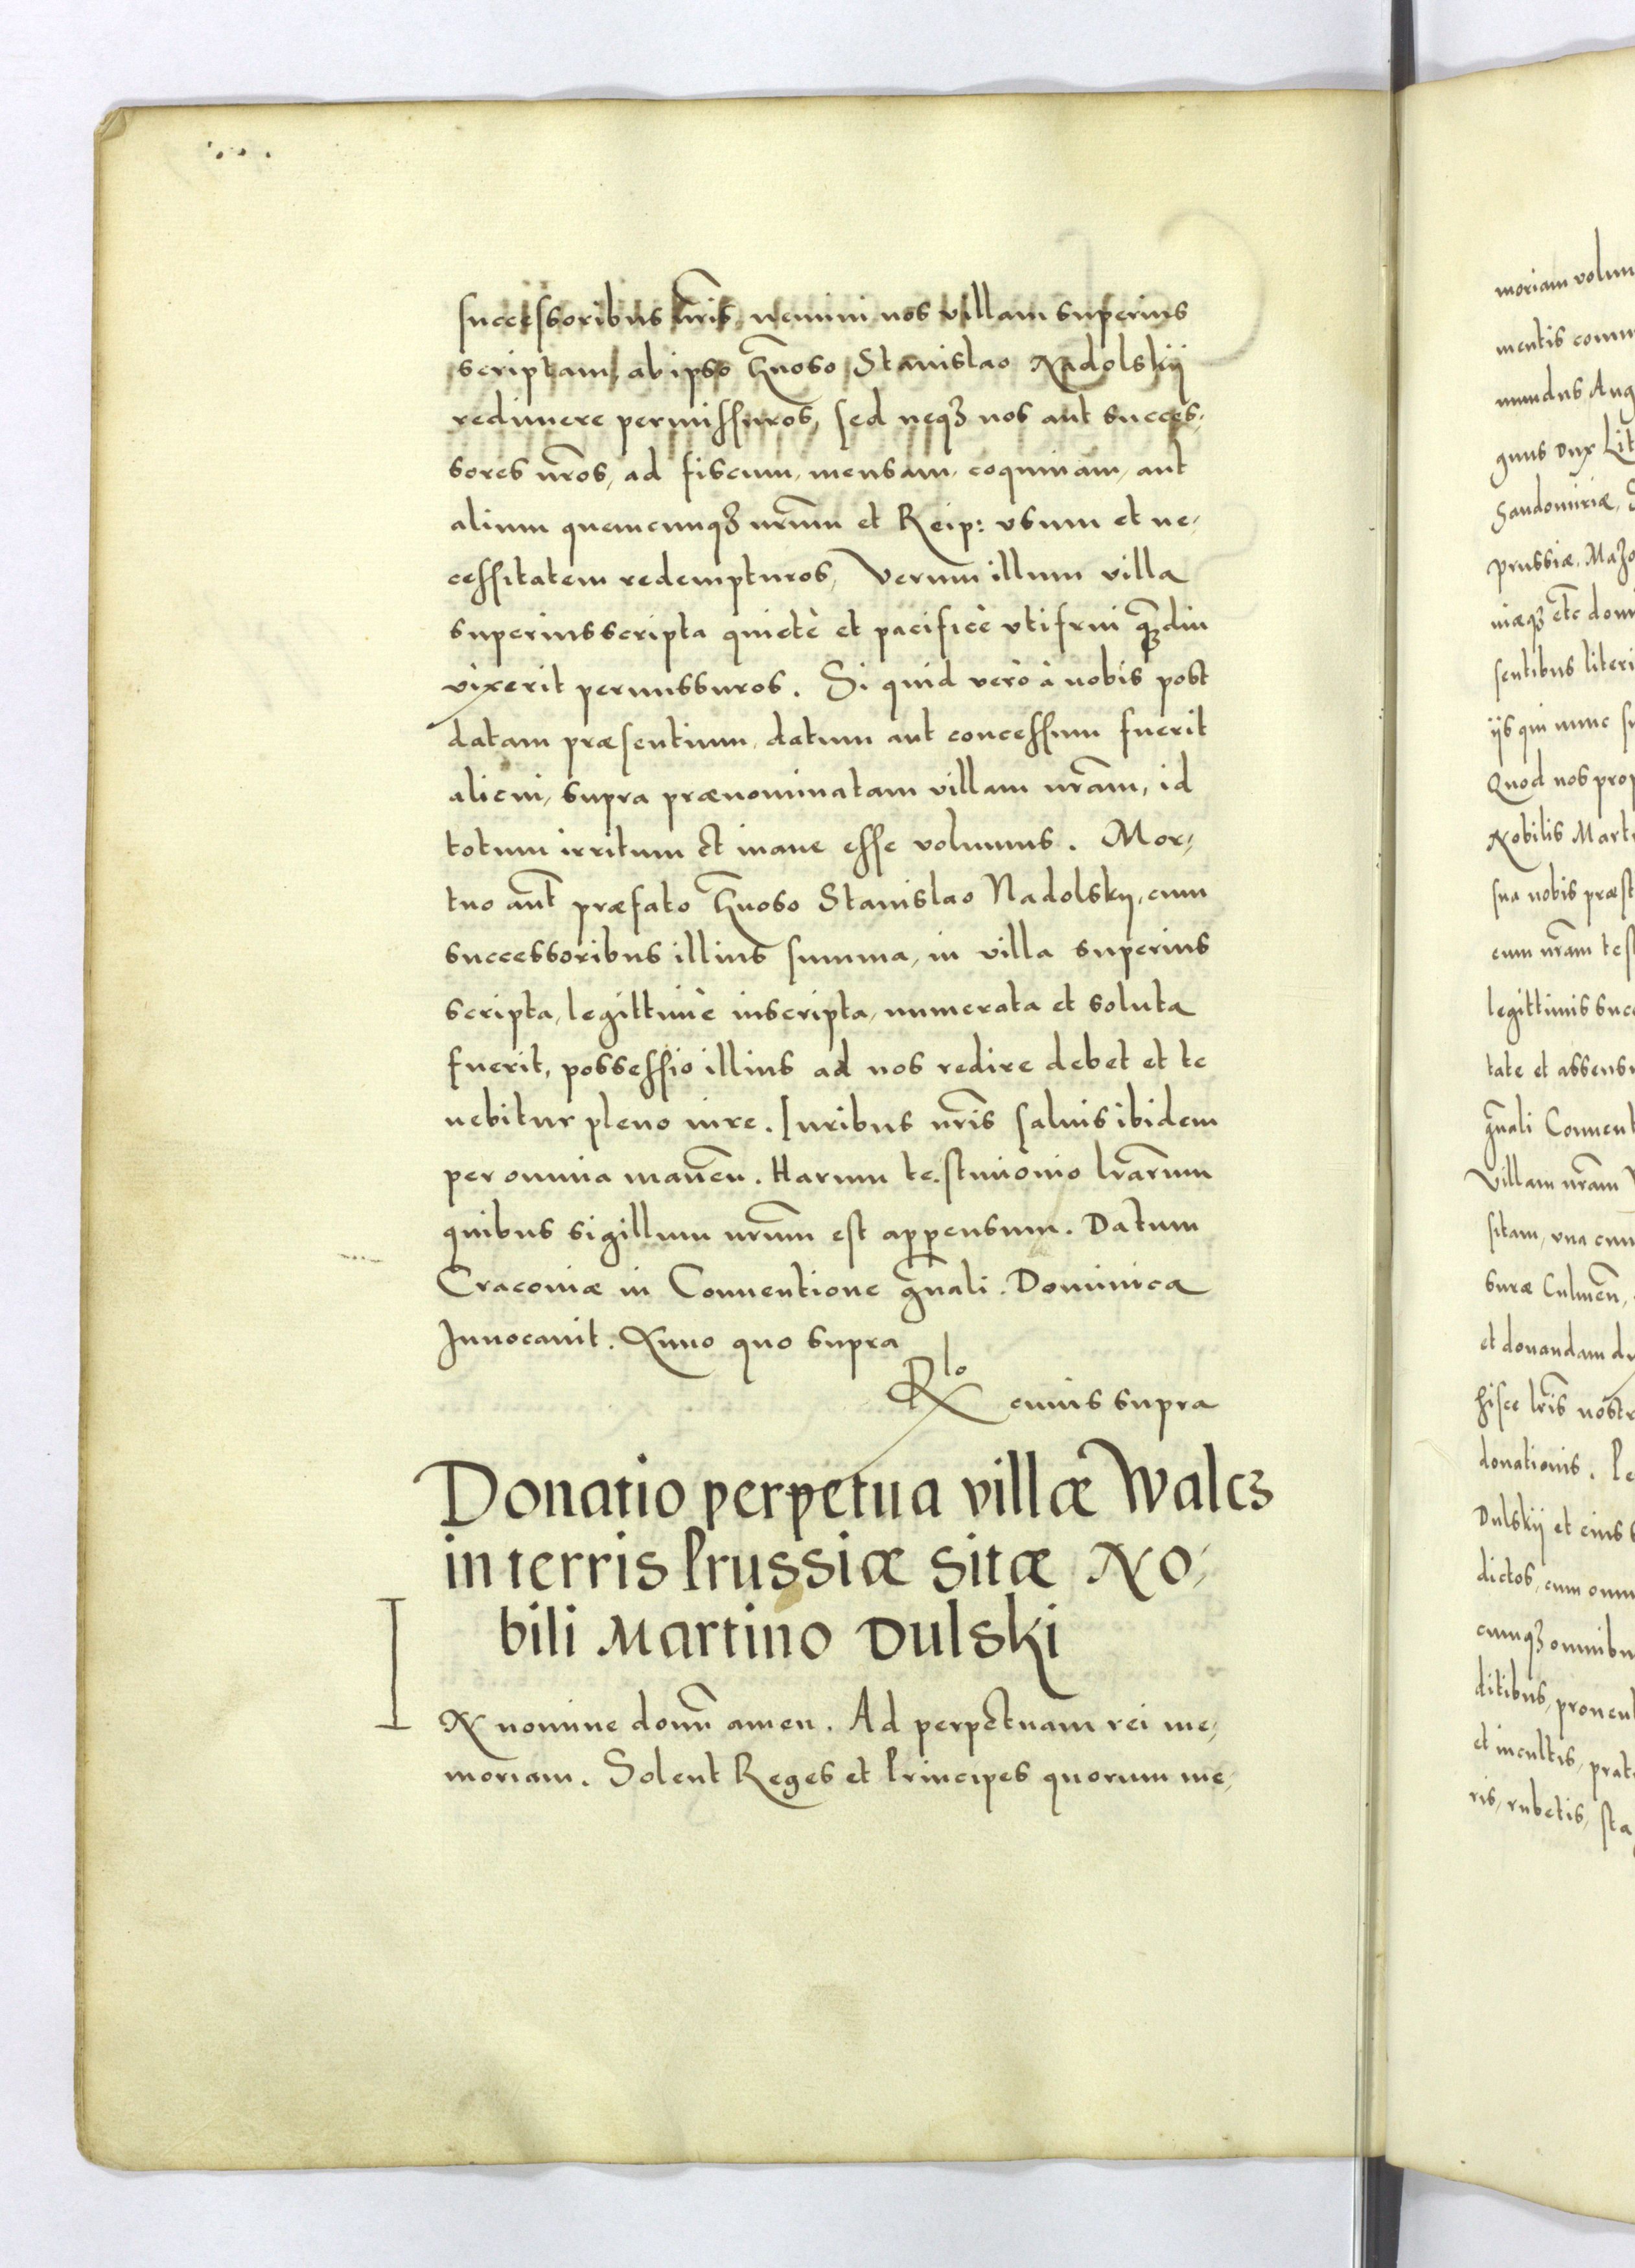 successoribus nr̃is, nemini nos villam superius
scriptam, ab ipso Gñoso Stanislao Nadolskij
redimere permissuros, sed neqꝫ nos aut succes-
sores nr̃os, ad fiscum, mensam, coquinam, aut
alium quemcunqꝫ nr̃um et Reip: vsum et ne-
cessitatem redempturos, Verum illum villa
superius scripta quietè et pacificè vtifrui qꝫ̃diu
vixerit permissuros. Si quid verò à nobis post
datam præsentium, datum aut concessum fuerit
alicui, supra prænominatam villam nr̃am, id
totum irritum et inane esse volumus. Mor-
tuo aũt præfato Gñoso Stanislao Nadolskij, cum
successoribus illius summa, in villa superius
scripta, legittimè inscripta, numerata et soluta
fuerit, possessio illius ad nos redire debet et te
nebitur pleno iure. Iuribus nr̃is saluis ibidem
per omnia maneñ. Harum testimonio lr̃arum
quibus sigillum nr̃um est appensum. Datum
Cracouiæ in Conuentione gñali. Dominica
Inuocauit. Anno quo supra
Rlo cuius supra
Donatio perpetua villæ Walcz
in terris Prussiæ sitæ No-
bili Martino Dulski
IN nomine domĩ amen. Ad perpetuam rei me-
moriam. Solent Reges et Principes quorum me-
moriam volum
mentis comm
mundus Aug
gnus Dux Lit
Sandomiriæ, S
Prussiæ, Mazo
niæqꝫ etc̃ domi
sentibus literi
ijs qui nunc su
Quod nos prop
Nobilis Marti
sua nobis præst
cum nr̃am test
legittimis succ
tate et assensu
gñali Conuent
Villam nr̃am W
sitam, vna cum
suræ Culmeñ,
et donandam du
hisce lr̃is nostr
donationis. Pe
Dulskij et eius s
dictos, cum omn
cumqꝫ omnibu
ditibus, prouent
et incultis, prat
ris, rubetis, sta